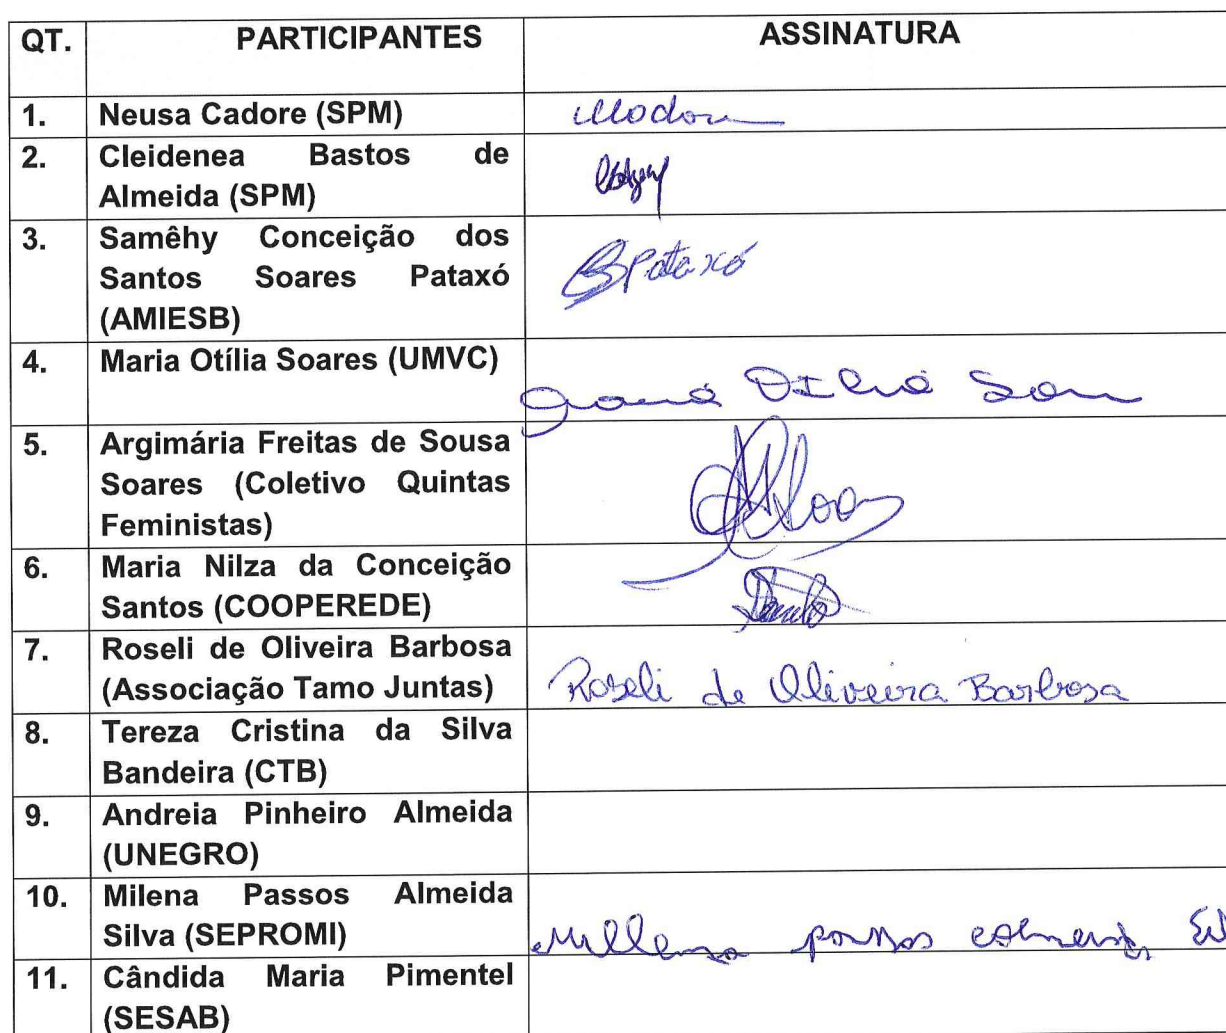 QT. PARTICIPANTES ASSINATURA
1. Neusa Cadore (SPM)
2. Cleidenea Bastos de
Almeida (SPM)
3. Samêhy Conceição dos
Santos Soares Pataxó
(AMIESB)
Pataxó
4. Maria Otília Soares (UMVC)
5. Argimária Freitas de Sousa
Soares (Coletivo Quintas
Feministas)
6. Maria Nilza da Conceição
Santos (COOPEREDE)
7. Roseli de Oliveira Barbosa
(Associação Tamo Juntas) Roseli de Oliveira Barbosa
8. Tereza Cristina da Silva
Bandeira (CTB)
9. Andreia Pinheiro Almeida
(UNEGRO)
10. Milena Passos Almeida
Silva (SEPROMI)
11. Cândida Maria Pimentel
(SESAB)